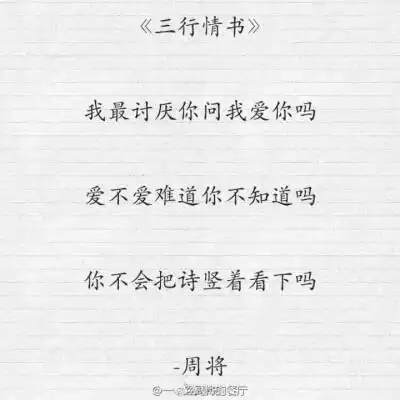 《三行情书》
我最讨厌你问我爱你吗
爱不爱难道你不知道吗
你不会把诗竖着看下吗
-周将